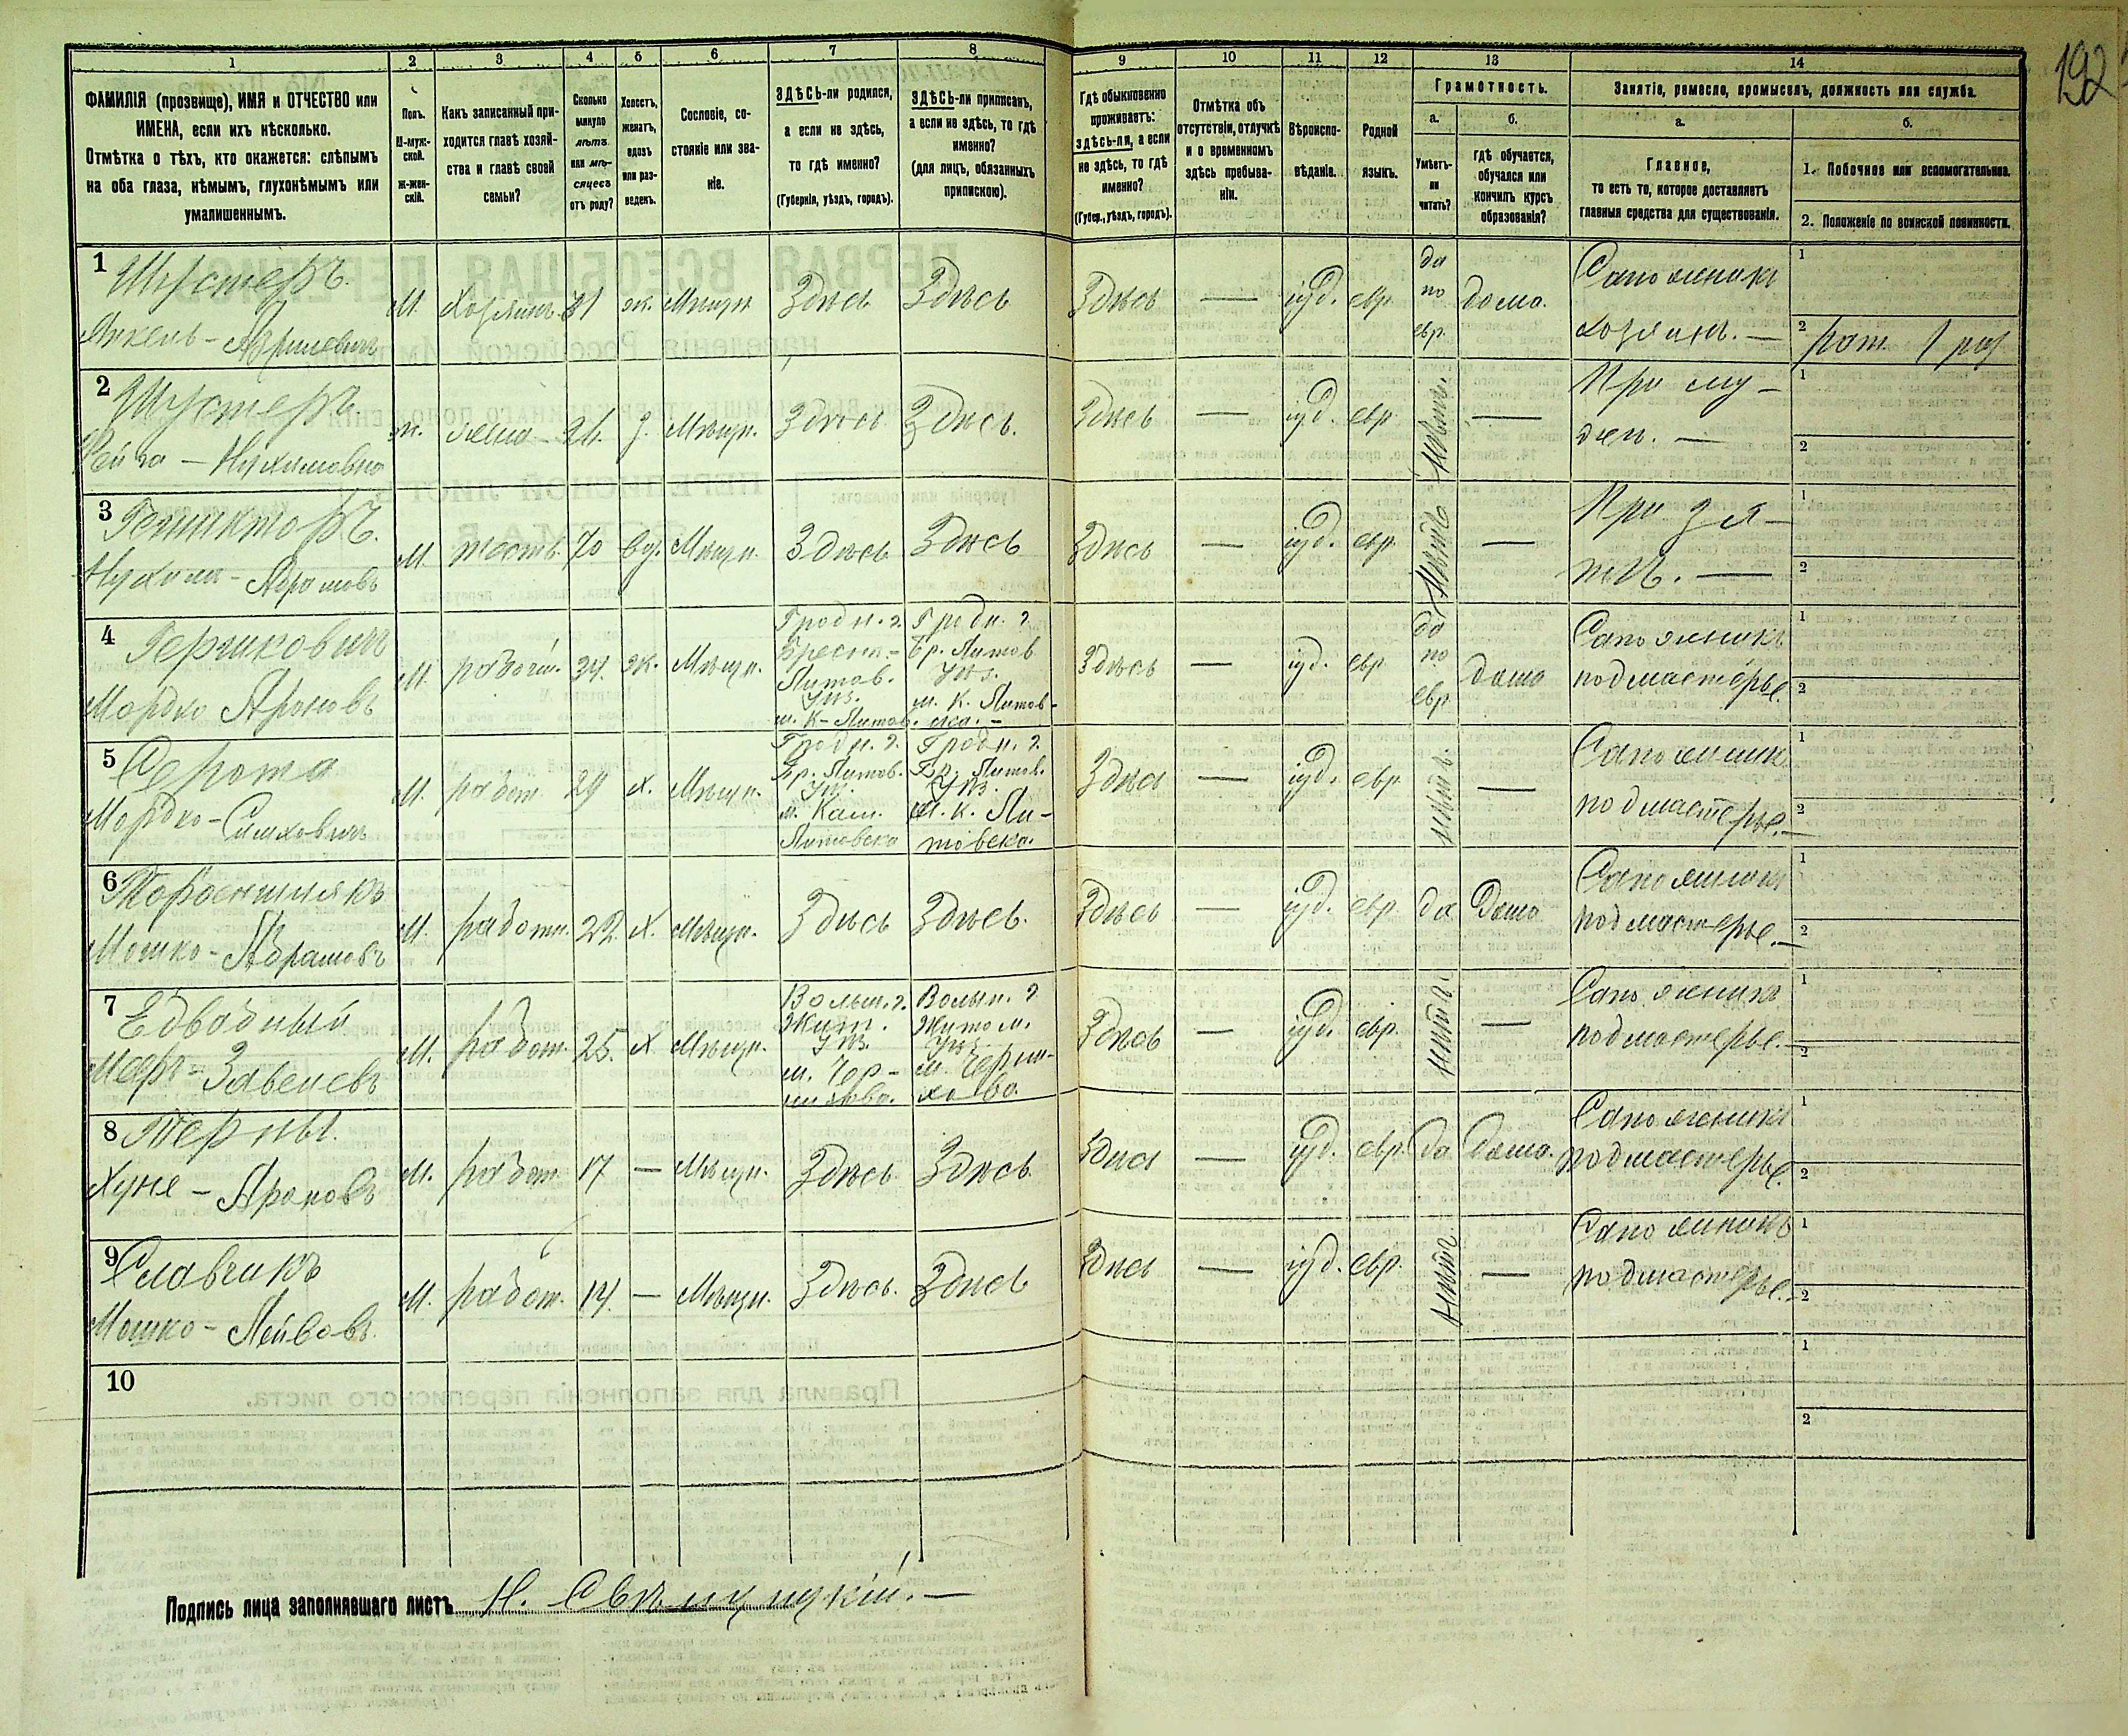 192
1 2 3 4 5 6 7 8 9 10 11 12 13 14
ФАМИЛІЯ (прозвище), ИМЯ и ОТЧЕСТВО или
ИМЕНА, если ихъ нѣсколько.
Отмѣтка о тѣхъ, кто окажется: слѣпымъ
на оба глаза, нѣмымъ, глухонѣмымъ или
умалишеннымъ.
Полъ.
М-муж-
ской.
Ж-жен-
скій.
Какъ записанный при-
ходится главѣ хозяй-
ства и главѣ своей
семьи?
Сколько
минуло
лѣтъ
или мѣ-
сяцевъ
отъ роду?
Холостъ,
женатъ,
вдовъ
или раз-
веденъ.
Сословіе, со-
стояніе или зва-
ніе.
ЗДѢСЬ-ли родился,
а если не здѣсь,
то гдѣ именно?
(Губернія, уѣздъ, городъ).
ЗДѢСЬ-ли приписанъ,
а если не здѣсь, то гдѣ
именно?
(для лицъ, обязанныхъ
припискою).
Гдѣ обыкновенно
проживаетъ:
здѣсь-ли, а если
не здѣсь, то гдѣ
именно?
(Губер., уѣздъ, городъ).
Отмѣтка объ
отсутствіи, отлучкѣ
и о временномъ
здѣсь пребыва-
ніи.
Вѣроиспо-
вѣданіе.
Родной
языкъ.
Грамотность.
а.
Умѣетъ-
ли
читать?
б.
гдѣ обучается,
обучался или
кончилъ курсъ
образованія?
Занятіе, ремесло, промыселъ, должность или служба.
а.
Главное,
то есть то, которое доставляетъ
главныя средства для существованія.
б.
1. Побочное или вспомогательное.
2. Положеніе по воинской повинности.
1 Шустеръ
М. Хозяинъ 31 ж. Мѣщн Здѣсь Здѣсь Здѣсь — іуд. евр да по евр. дома. Сапожникъ
хозяинъ. —
1
2
2 Шустеръ
Фейга - Нухимовна
ж. жена 26. з. Мѣщн. Здѣсь Здѣсь. Здѣсь — іуд. евр нѣтъ. — При му-
жѣ. —
1
2
3
Нухим - Абрамовъ
М. тесть 70 вд. Мѣщн. Здѣсь Здѣсь Здѣсь — іуд. евр нѣтъ — При зя-
тѣ. —
1
2
4 Гершковичъ
Мордко Ароновъ
М. работн. 34. ж. Мѣщн. Гродн. г. Брест-Литов. Уѣз. м. К-Литов. Гродн. г. Бр. Литов Уѣз. м. К. Литов-ска. - Здѣсь — іуд. евр да по евр дома Сапожникъ
подмастерье.
1
2
5 Серота
Мордко - Симховичъ
М. работ. 29 х. Мѣщн. Гродн. г. Бр. Литов. Уѣз. м. Кам. Литовска Гродн. г. Бр. Литов. Уѣз. М. К. Ли-товска. Здѣсь — іуд. евр нѣтъ. — Сапожник
подмастерье. —
1
2
6
Мошко - Абрамовъ
М. работн. 22 х. Мѣщн. Здѣсь Здѣсь. Здѣсь — іуд. евр да Дома Сапожник
подмастерье. —
1
2
7 Едвабный
М. работ. 25. х Мѣщн. Волын. г. Жит. Уѣз. м. Чер-няхова. Волын. г. Житом. Уѣз. м. Черня-хова. Здѣсь — іуд. евр. нѣтъ — Сапожникъ
подмастерье. —
1
2
8
Хуне - Ароновъ
М. работ. 17 — Мѣщн. Здѣсь Здѣсь. Здѣсь — іуд. евр. да дома. Сапожникъ
подмастерье.
1
2
9 Славчикъ
Мошко - Лейбовъ.
М. работ. 14. — Мѣщн. Здѣсь. Здѣсь Здѣсь — іуд. евр. нѣтъ — Сапожникъ
подмастерье. —
1
2
10
1
2
Подпись лица заполнявшаго листъ Н.